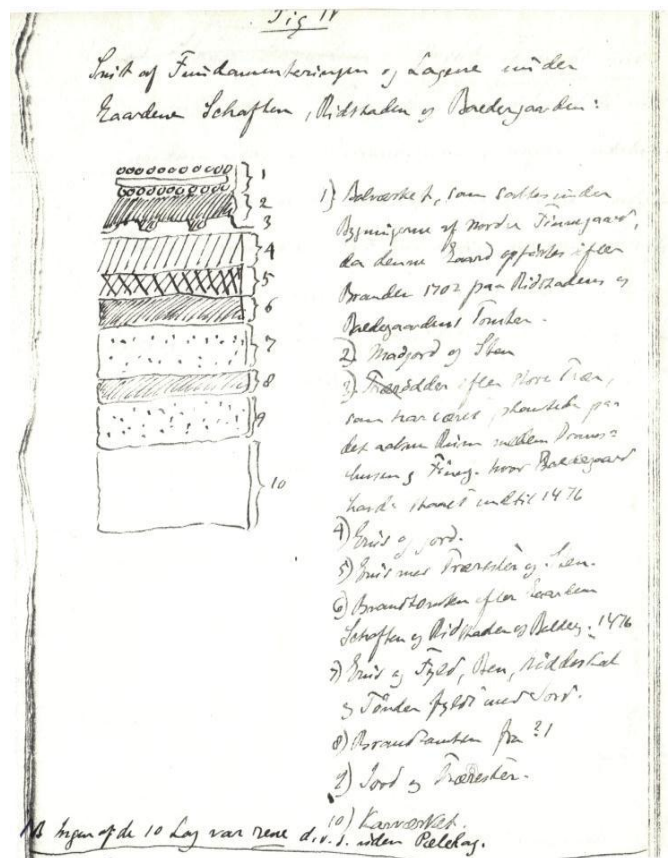 Fig IV
Snit af Fundamenteringen og Lagene under
Gaardene Schaften, Ridstaden og Baedergaarden:
1
2
3
4
5
6
7
8
9
10
1) Bolværket, som sattes under
Bygningerne af Nordre Finnegaard,
da denne Gaard opførtes efter
Branden 1702 paa Ridstadens og
Baedegaardens Tomter.
2) Madjord og Sten
3) Trærødder efter store Træer,
som har været plantede paa
det aabne Rum mellem
husen og Finneg. hvor Baedegaard
havde staaet indtil 1476
4) Grus og Jord.
5) Grus med Trærester og Sten.
6) Brandtomten efter Gaarden
Schaften og Ridstaden og Baedeg. 1476
7) Grus og Fyld, Ben, Nøddeskal
og Tønder fyldt med Jord.
8) Brandtomten fra ?1
9) Jord og Trærester.
10) Karværket.
NB Ingen af de 10 Lag var rene d.v.s. uden Pælelag.